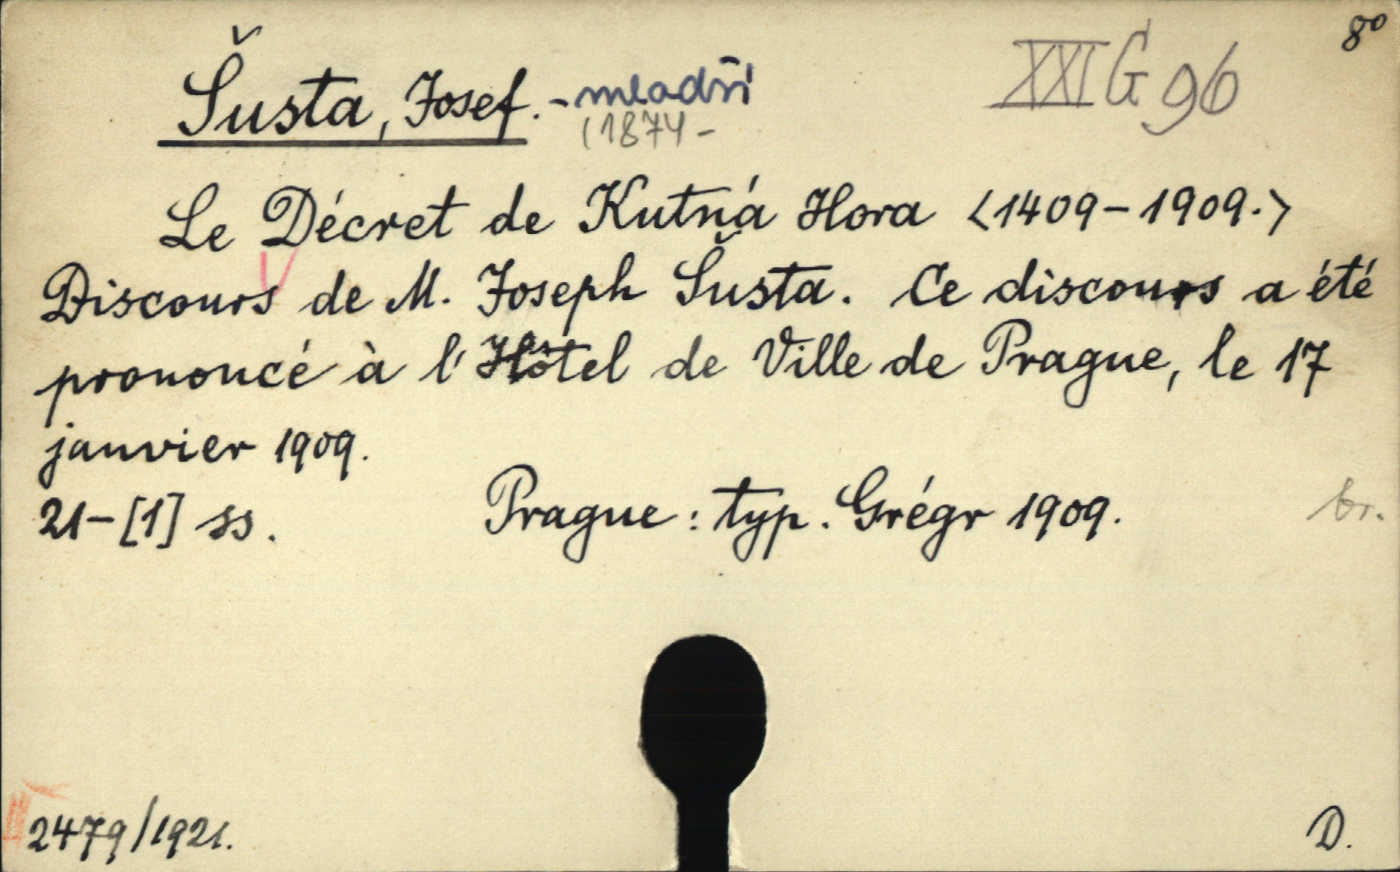 8°
XXI G 96
Šusta, Josef. - mladší
(1874 -
Le Décret de Kutná Hora <1409-1909.>
Discours de M. Joseph Šusta. Ce discours a été
prononcé à l'Hôtel de Ville de Prague, le 17
janvier 1909.
21-[1] ss. Prague: typ. Grégr 1909.
br.
2479/1921.
D.